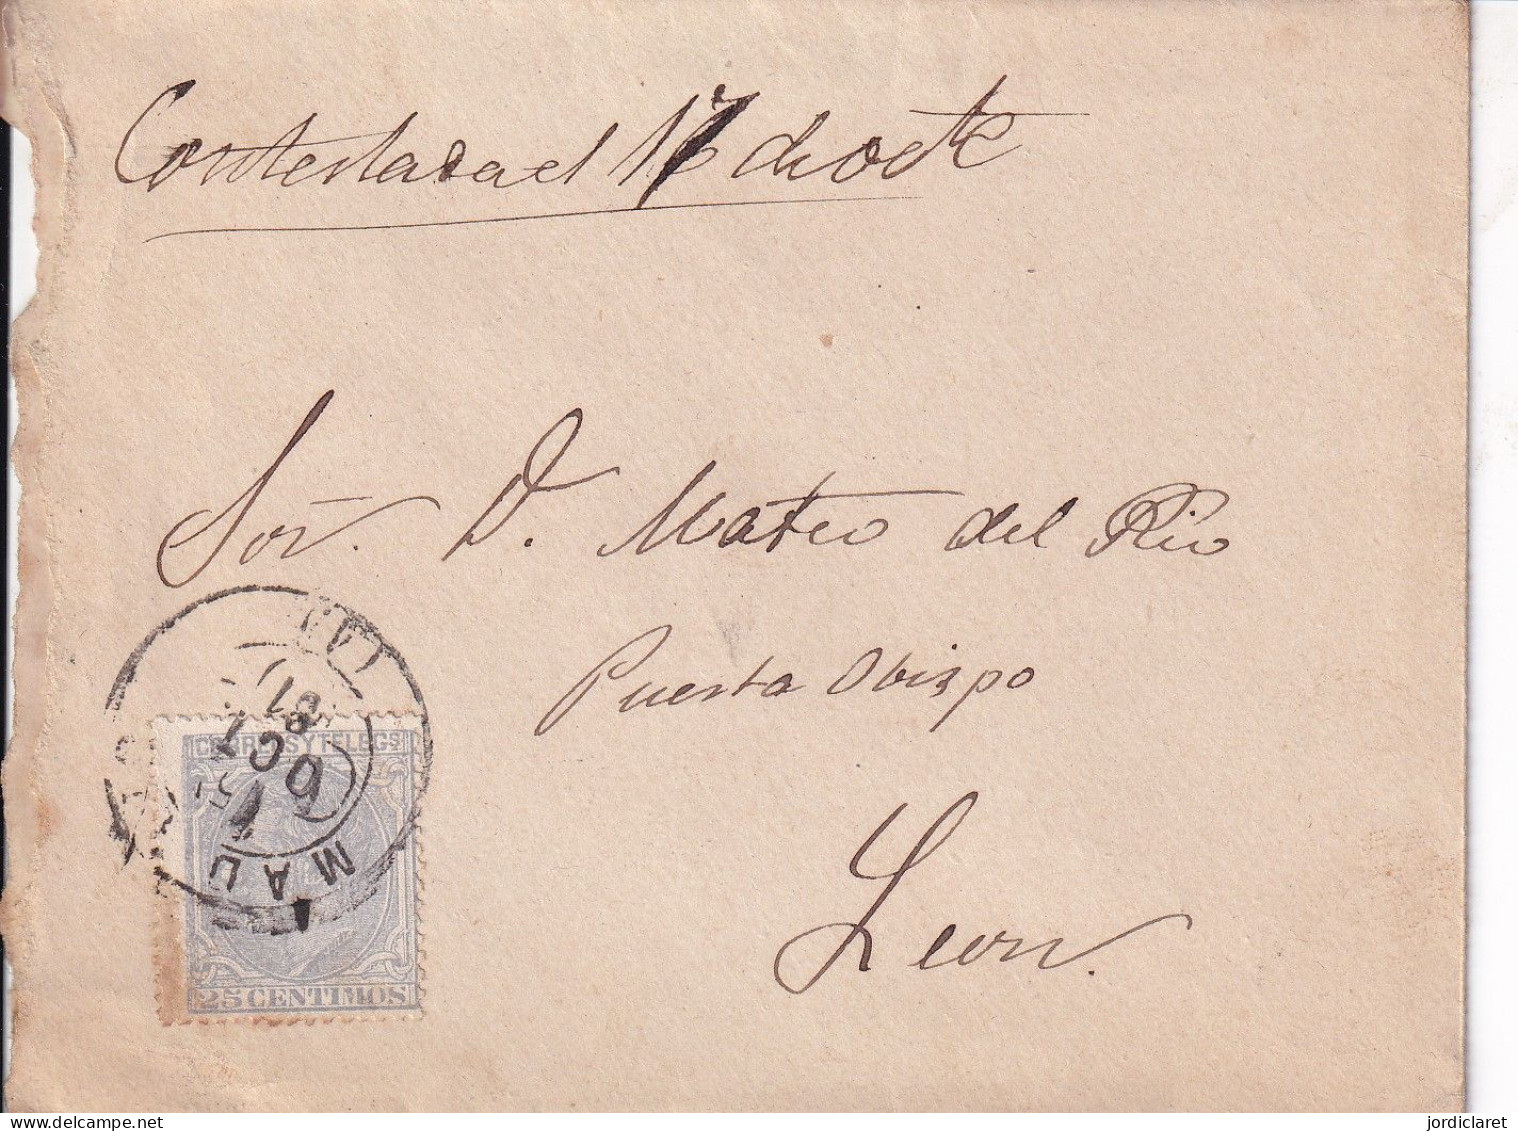 Contestada el 17 de octe
Señr. D. Mateo del Rio
Puerta Obispo
Leon.
CORREOS Y TELEGS
OCT
81
MAD
25 CENTIMOS
delcampe.net
jordiclaret